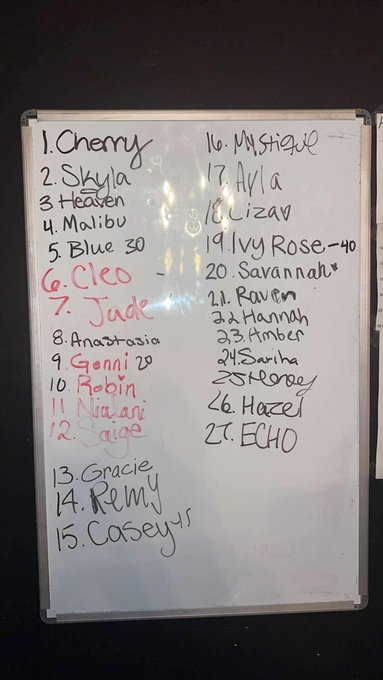 1. Cherry
2. Skyla
3 Heaven
4. Malibu
5. Blue 30
6. Cleo -
7. Jade
8. Anastasia
9. Genni 20
10. Robin
11 Nialani
12. Saige
13. Gracie
14. Remy
15. Casey 45
16. Mystique
17. Ayla
18. Liza
19. Ivy Rose - 40
20. Savannah
21. Raven
22 Hannah
23. Amber
24. Sariha
25
26. Hazel
27. ECHO